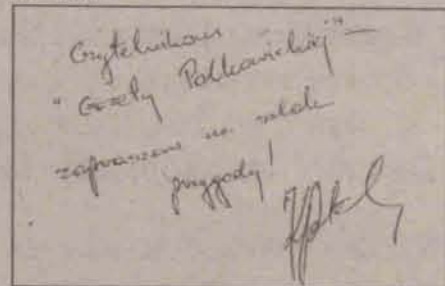 Czytelnikom
"Gazety Polkowickiej" –
zapraszam na szlak
przygody!